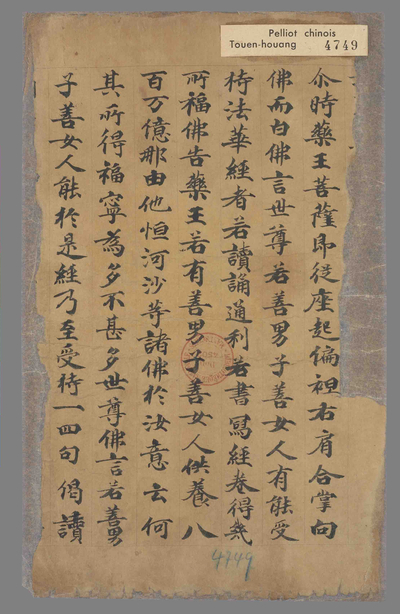 Pelliot chinois
Touen-houang 4749
尒時藥王菩薩即從座起偏袒右肩合掌向
佛而白佛言世尊若善男子善女人有能受
持法華經者若讀誦通利若書寫經卷得幾
所福佛告藥王若有善男子善女人供養八
百万億那由他恒河沙等諸佛於汝意云何
其所得福寧為多不甚多世尊佛言若善男
子善女人能於是經乃至受持一四句偈讀
4749